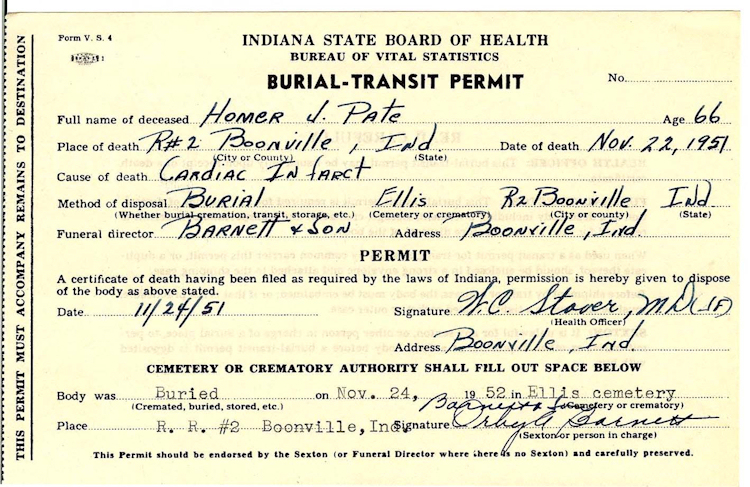 THIS PERMIT MUST ACCOMPANY REMAINS TO DESTINATION
Form V. S. 4
INDIANA STATE BOARD OF HEALTH
BUREAU OF VITAL STATISTICS
BURIAL-TRANSIT PERMIT
No.
Full name of deceased Homer J. Pate Age 66
Place of death R#2 Boonville, Ind. Date of death Nov. 22, 1951
(City or County) (State)
Cause of death Cardiac Infarct
Method of disposal Burial Ellis R2 Boonville Ind
(Whether burial, cremation, transit, storage, etc.) (Cemetery or crematory) (City or county) (State)
Funeral director Barnett & Son Address Boonville, Ind.
PERMIT
A certificate of death having been filed as required by the laws of Indiana, permission is hereby given to dispose
of the body as above stated.
Date 11/24/51 Signature W.C. Stover, M.D.
(Health Officer)
Address Boonville, Ind.
CEMETERY OR CREMATORY AUTHORITY SHALL FILL OUT SPACE BELOW
Body was Buried on Nov. 24, 1952 in Ellis cemetery
(Cremated, buried, stored, etc.) (Cemetery or crematory)
Place R. R. #2 Boonville, Ind. Signature Barnett
(Sexton or person in charge)
This Permit should be endorsed by the Sexton (or Funeral Director where there is no Sexton) and carefully preserved.